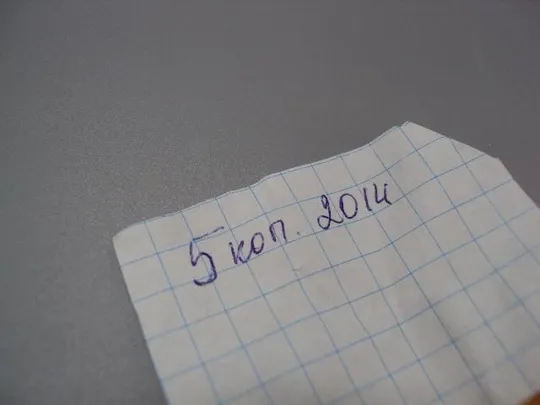 5 коп. 2014